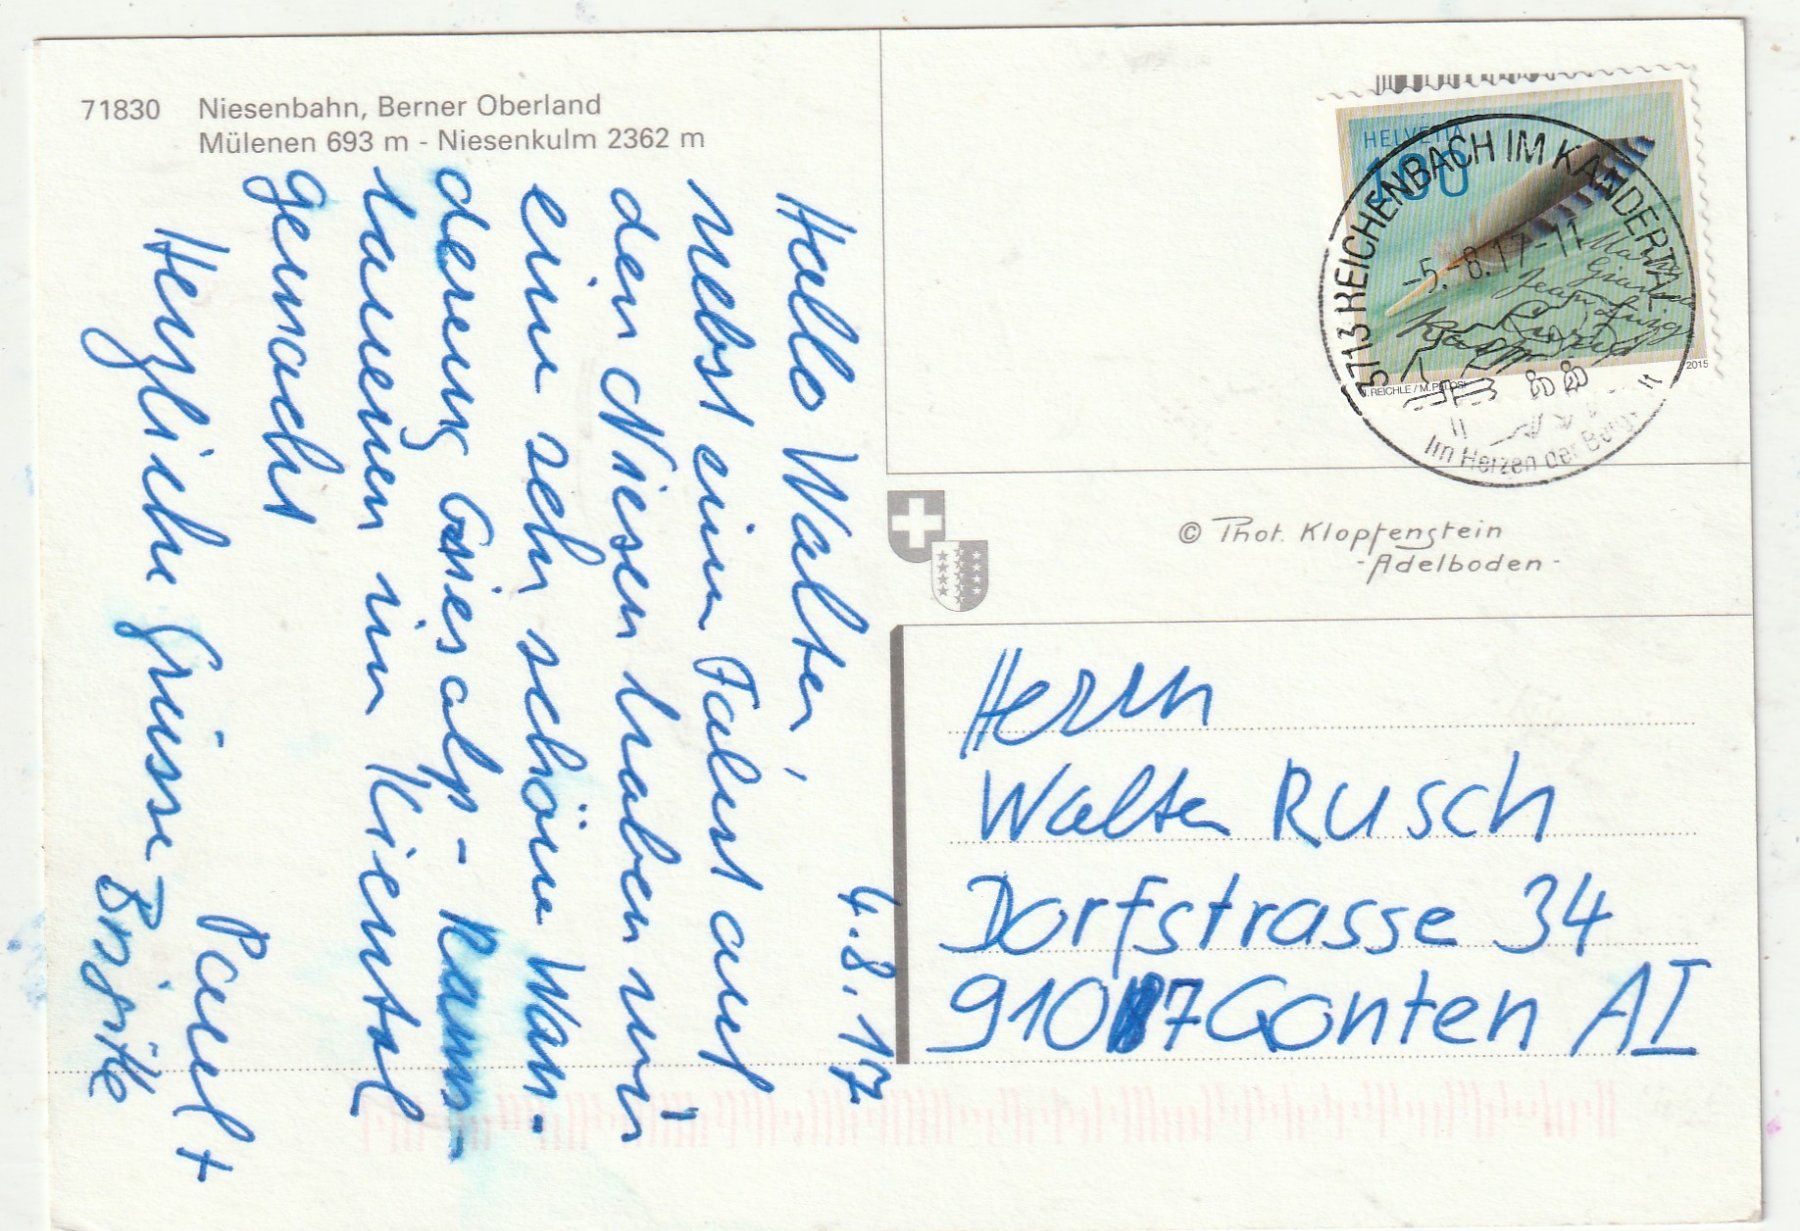 71830 Niesenbahn, Berner Oberland
Mülenen 693 m - Niesenkulm 2362 m
4.8.17
Hallo Walter,
nebst einer Fahrt auf
den Niesen haben wir
eine sehr schöne Wan-
derung Griesalp - Rams-
lauenen im Kiental
gemacht
Herzliche Grüsse
Paul +
Brigitte
HELVETIA
100
3713 REICHENBACH IM KANDERTAL
-5.-8.17-11
Im Herzen der Berge
J. REICHLE / M. PELOSI
2015
© Phot. Klopfenstein
- Adelboden -
Herrn
Walter Rusch
Dorfstrasse 34
9107 Gonten AI